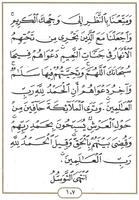 وَمَتِّعْنَا بِالنَّظَرِ إِلَى وَجْهِكَ الْكَرِيمِ
وَاجْعَلْنَا مَعَ الَّذِينَ تَجْرِي مِنْ تَحْتِهِمُ
الْأَنْهَارُ فِي جَنَّاتِ النَّعِيمِ دَعْوَاهُمْ فِيهَا
سُبْحَانَكَ اللَّهُمَّ وَتَحِيَّتُهُمْ فِيهَا سَلَامٌ
وَآخِرُ دَعْوَاهُمْ أَنِ الْحَمْدُ لِلَّهِ رَبِّ
الْعَالَمِينَ وَتَرَى الْمَلَائِكَةَ حَافِّينَ مِنْ
حَوْلِ الْعَرْشِ يُسَبِّحُونَ بِحَمْدِ رَبِّهِمْ
وَقُضِيَ بَيْنَهُمْ بِالْحَقِّ وَقِيلَ الْحَمْدُ لِلَّهِ
رَبِّ الْعَالَمِينَ
انْتَهَى التَّوَسُّلُ
١٠٧